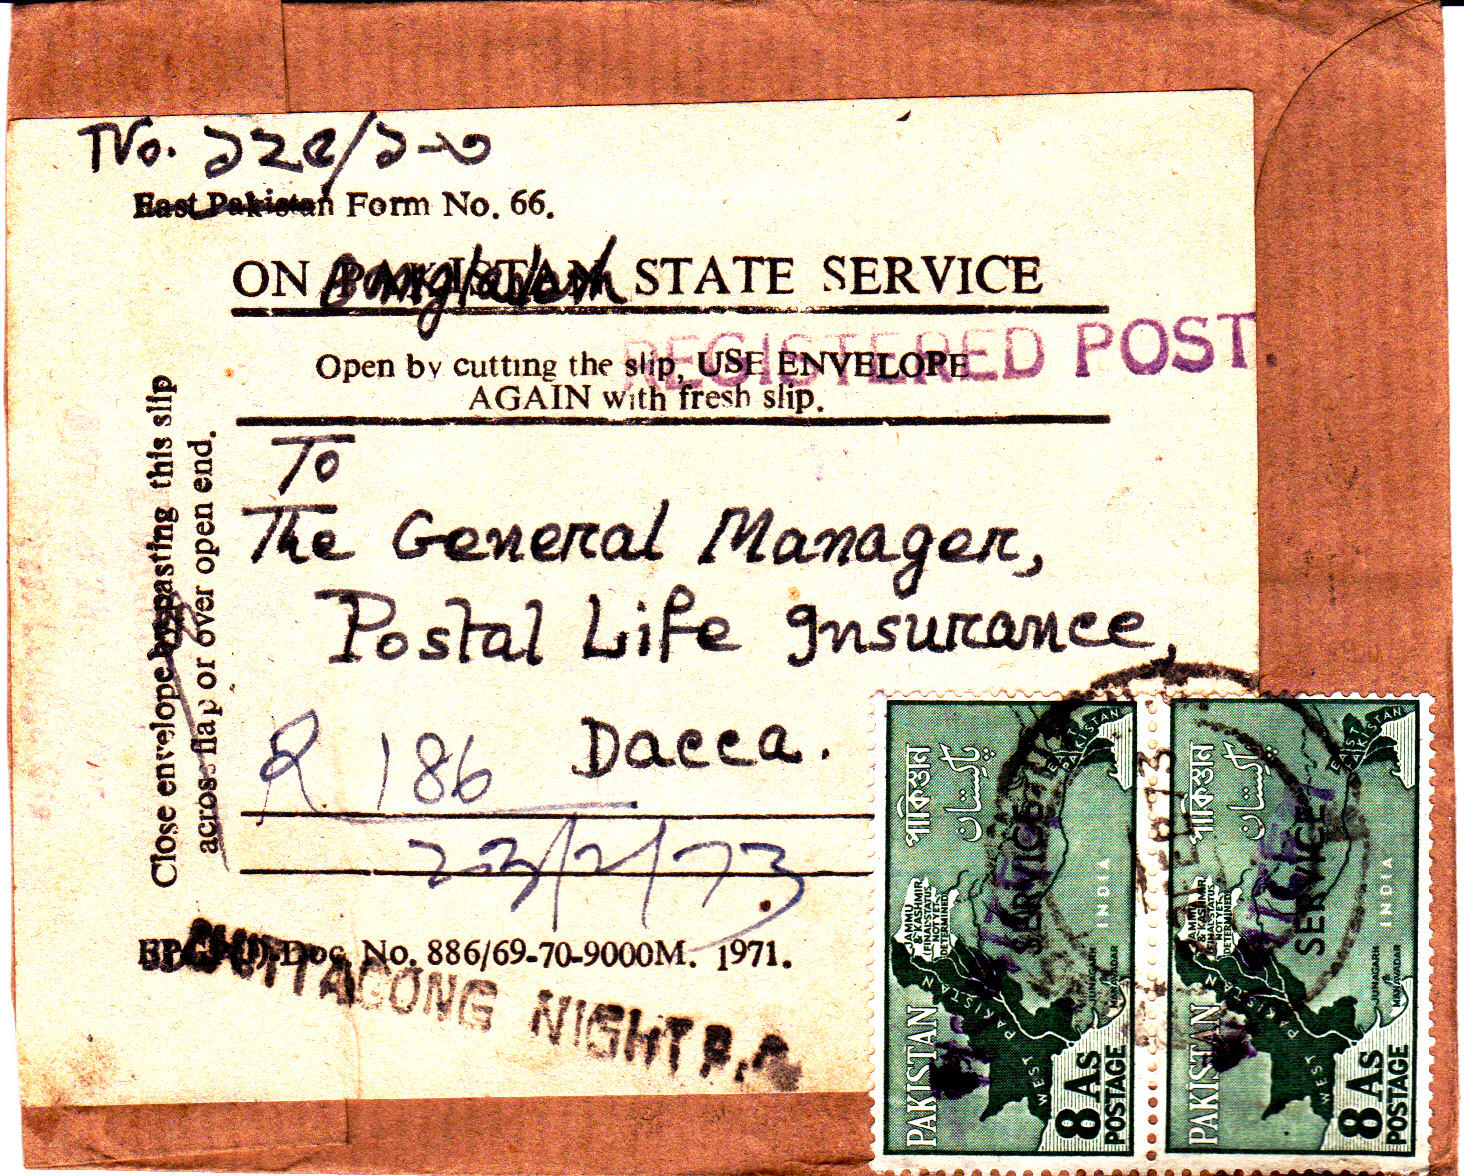 No. ১২৫/১-৩
East Pakistan Form No. 66.
ON Bangladesh STATE SERVICE
REGISTERED POST.
Open by cutting the slip, USE ENVELOPE
AGAIN with fresh slip.
Close envelope by pasting this slip
across flap or over open end.
To
The General Manager,
Postal Life Insurance,
Dacca.
R 186
23/2/73
Doc. No. 886/69-70-9000M. 1971.
CHITTAGONG NIGHT P.O.
EAST PAKISTAN
পাকিস্তান
پاکستان
SERVICE
INDIA
JAMMU & KASHMIR (FINAL STATUS NOT YET DETERMINED)
JUNAGARH & MANAVADAR
WEST PAKISTAN
PAKISTAN
8 As
POSTAGE
EAST PAKISTAN
পাকিস্তান
پاکستان
SERVICE
INDIA
JAMMU & KASHMIR (FINAL STATUS NOT YET DETERMINED)
JUNAGARH & MANAVADAR
WEST PAKISTAN
PAKISTAN
8 As
POSTAGE